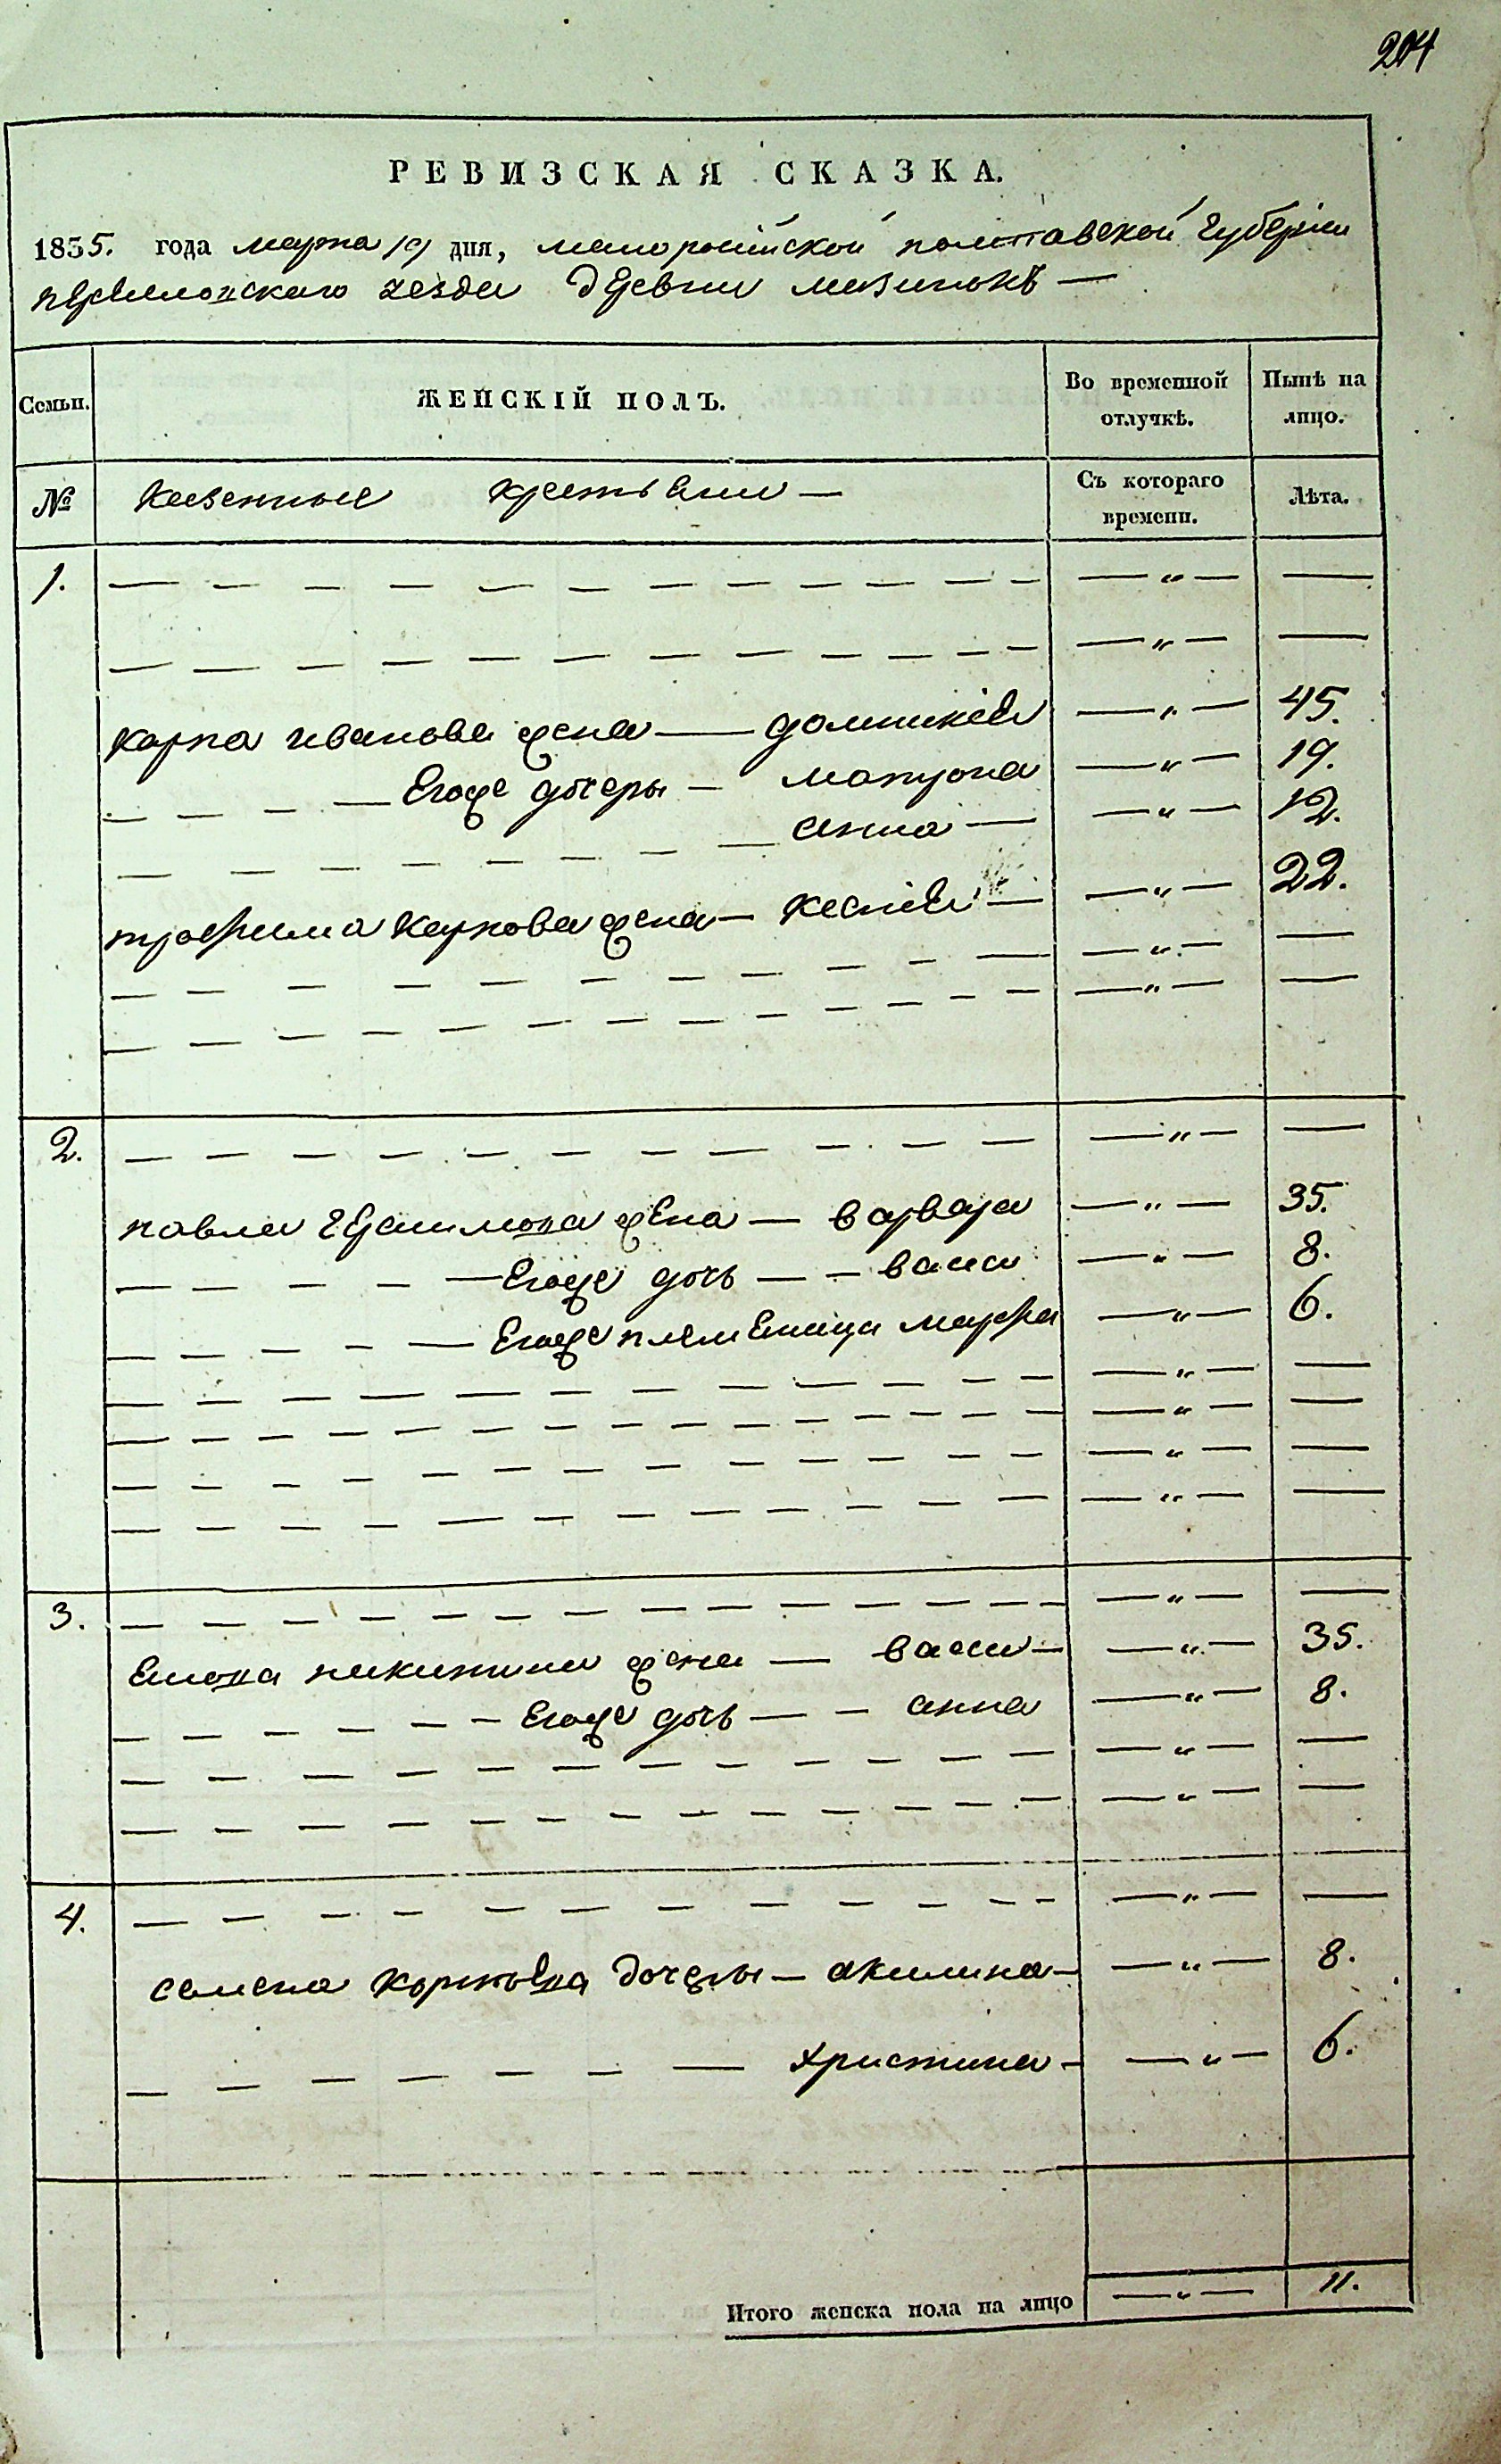 204
РЕВИЗСКАЯ СКАЗКА.
1835. года марта 19 дня, малоросийской полтавской Губернии
уезда Деревни мазинокъ —
Семьи. ЖЕНСКІЙ ПОЛЪ. Во временной отлучкѣ. Нынѣ на лицо.
№ Казенные крестьяни — Съ котораго времени. Лѣта.
1. — — „ — —
— — „ — —
карпа иванова жена — домникия — „ — 45.
— Егоже дочеры — мотрона — „ — 19.
— анна — — „ — 12.
трофима Карпова жена — Ксения — — „ — 22.
— — „ — —
— — „ — —
2. — — „ — —
павла Герасимова жена — варвара — „ — 35.
— Егоже дочь — васса — „ — 8.
— Егоже племеница марфа — „ — 6.
— — „ — —
— — „ — —
— — „ — —
— — „ — —
3. — — „ — —
никитина жена — васса — — „ — 35.
— Егоже дочь — анна — „ — 8.
— — „ — —
— — „ — —
4. — — „ — —
семена дочеры — акилина — — „ — 8.
— христина — — „ — 6.
Итого женска пола на лицо — „ — 11.